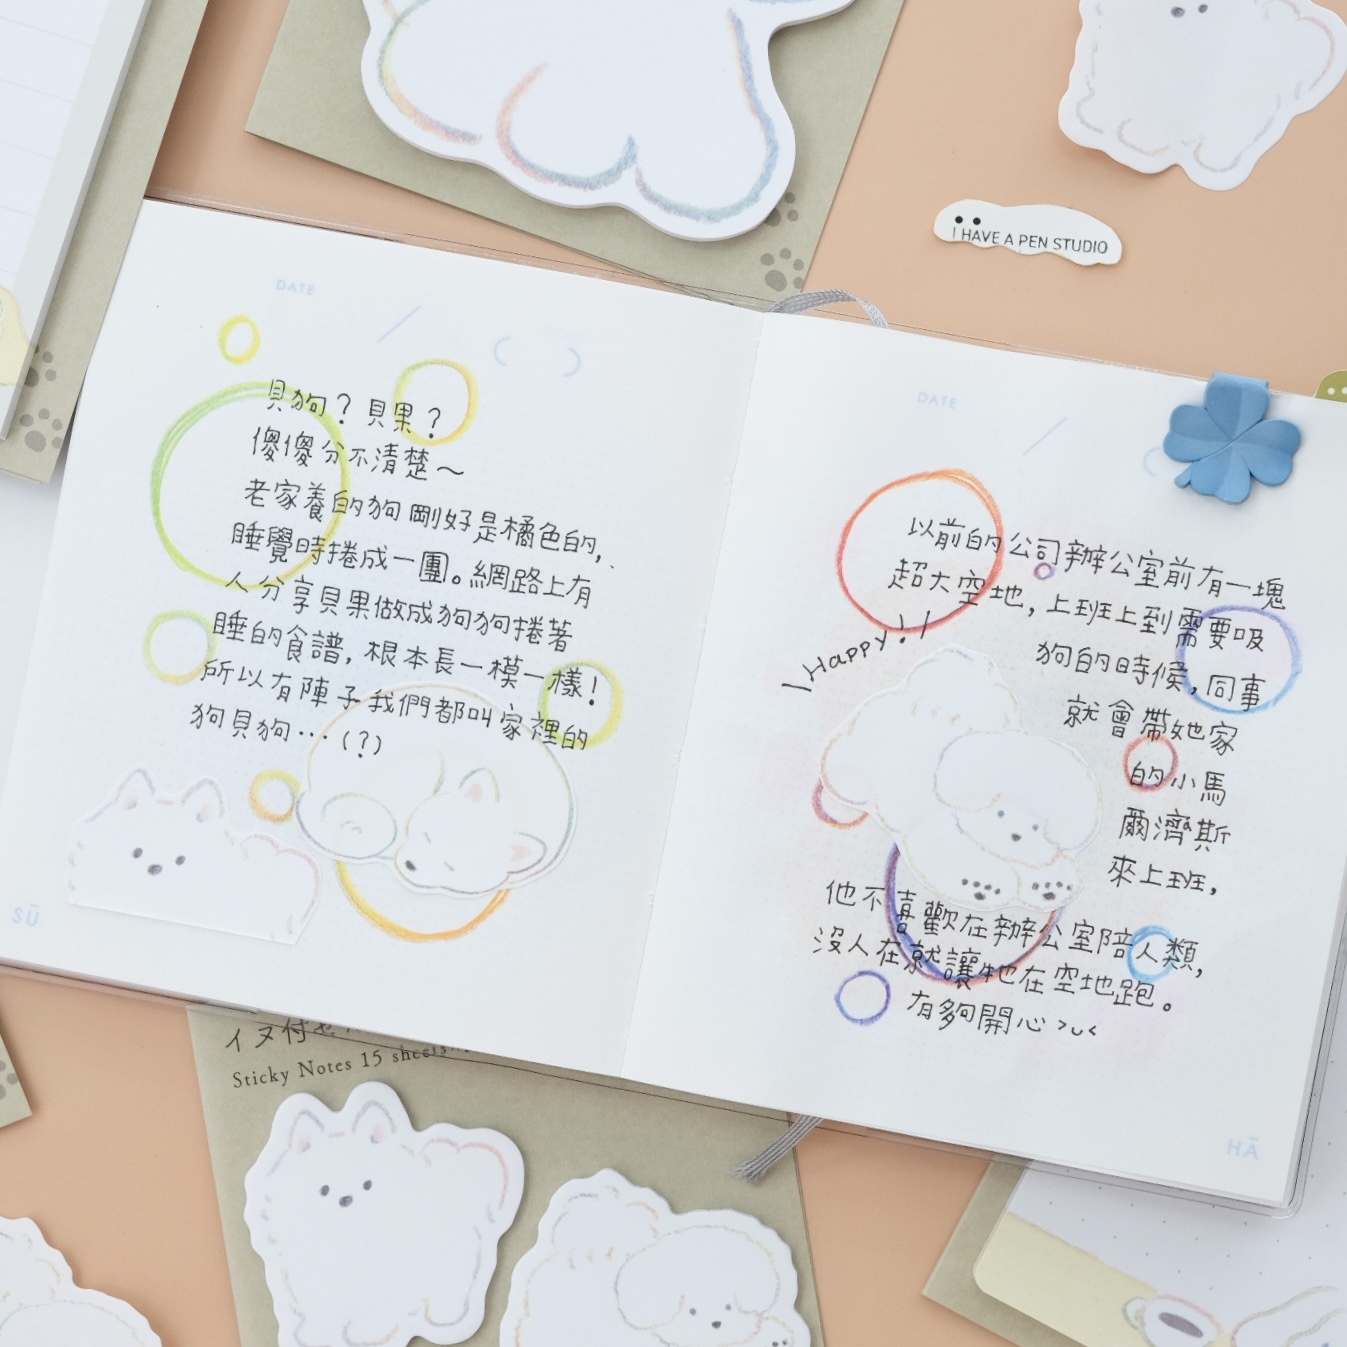 I HAVE A PEN STUDIO
DATE
貝狗？貝果？
傻傻分不清楚～
老家養的狗剛好是橘色的，
睡覺時捲成一團。網路上有
人分享貝果做成狗狗捲著
睡的食譜，根本長一模一樣！
所以有陣子我們都叫家裡的
狗貝狗⋯（？）
SŪ
DATE
以前的公司辦公室前有一塊
超大空地，上班上到需要吸
狗的時候，同事
就會帶她家
的小馬
爾濟斯
來上班，
\ Happy! /
他不喜歡在辦公室陪人類，
沒人在就讓牠在空地跑。
有夠開心 >ᴗ<
HĀ
Sticky Notes 15 sheets